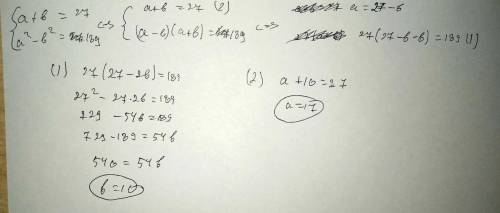 {a+b = 27 <=> {a+b = 27 (2) a = 27-b
{a²-b² = 189 {(a-b)(a+b) = 189 <=> 27(27-b-b) = 189 (1)
(1) 27(27-2b)=189
27² - 27·2b = 189
729 - 54b = 189
729-189 = 54b
540 = 54b
b=10
(2) a+10=27
a=17